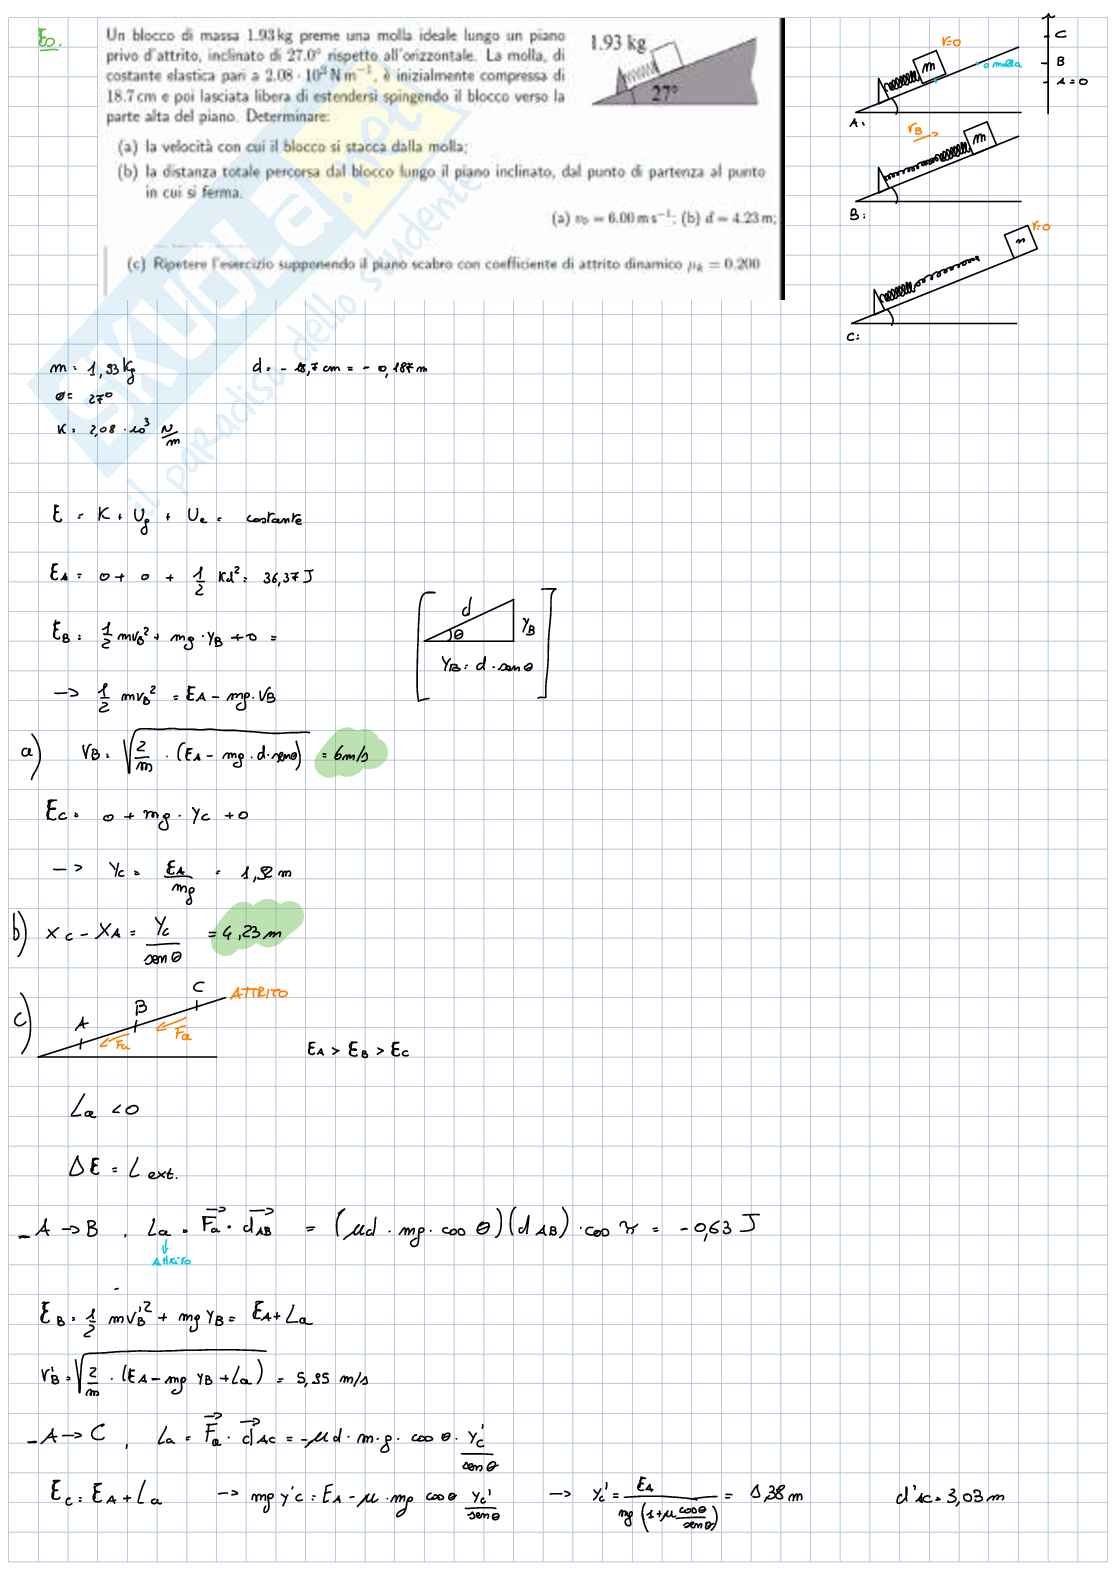 Es.
Un blocco di massa 1.93 kg preme una molla ideale lungo un piano
privo d'attrito, inclinato di 27.0° rispetto all'orizzontale. La molla, di
costante elastica pari a 2.08 · 10³ N m⁻¹, è inizialmente compressa di
18.7 cm e poi lasciata libera di estendersi spingendo il blocco verso la
parte alta del piano. Determinare:
(a) la velocità con cui il blocco si stacca dalla molla;
(b) la distanza totale percorsa dal blocco lungo il piano inclinato, dal punto di partenza al punto
in cui si ferma.
(a) v₀ = 6.00 m s⁻¹; (b) d = 4.23 m;
(c) Ripetere l'esercizio supponendo il piano scabro con coefficiente di attrito dinamico μₖ = 0.200
1.93 kg
27°
v=0
m
o molla
C
B
A=0
A:
vB
m
B:
v=0
m
C:
SKUOLA.net
il paradiso dello studente
m = 1,93 kg
d = - 18,7 cm = - 0,187 m
θ = 27°
K = 2,08 · 10³ N/m
E = K + Ug + Ue = costante
EA = 0 + 0 + 1/2 Kd² = 36,37 J
EB = 1/2 mvB² + mg · yB + 0 =
d
θ
yB
yB = d · senθ
-> 1/2 mvB² = EA - mg · vB
a) vB = √(2/m · (EA - mg · d · senθ)) = 6 m/s
EC = 0 + mg · yC + 0
-> yC = EA/mg = 1,92 m
b) xC - xA = yC/senθ = 4,23 m
c)
A
B
C
ATTRITO
Fa
Fa
EA > EB > EC
La < 0
ΔE = L ext.
- A → B , La = Fa · dAB = (μd · mg · cos θ)(dAB) · cos π = -0,63 J
Attrito
EB = 1/2 mv'B² + mg yB = EA + La
v'B = √(2/m · (EA - mg yB + La)) = 5,95 m/s
- A → C , La = Fa · dAC = -μd · m · g · cos θ · yC'/senθ
EC = EA + La -> mg y'C = EA - μ · mg cosθ yC'/senθ -> yC' = EA/mg(1+μ cosθ/senθ) = 1,38 m d'AC = 3,03 m